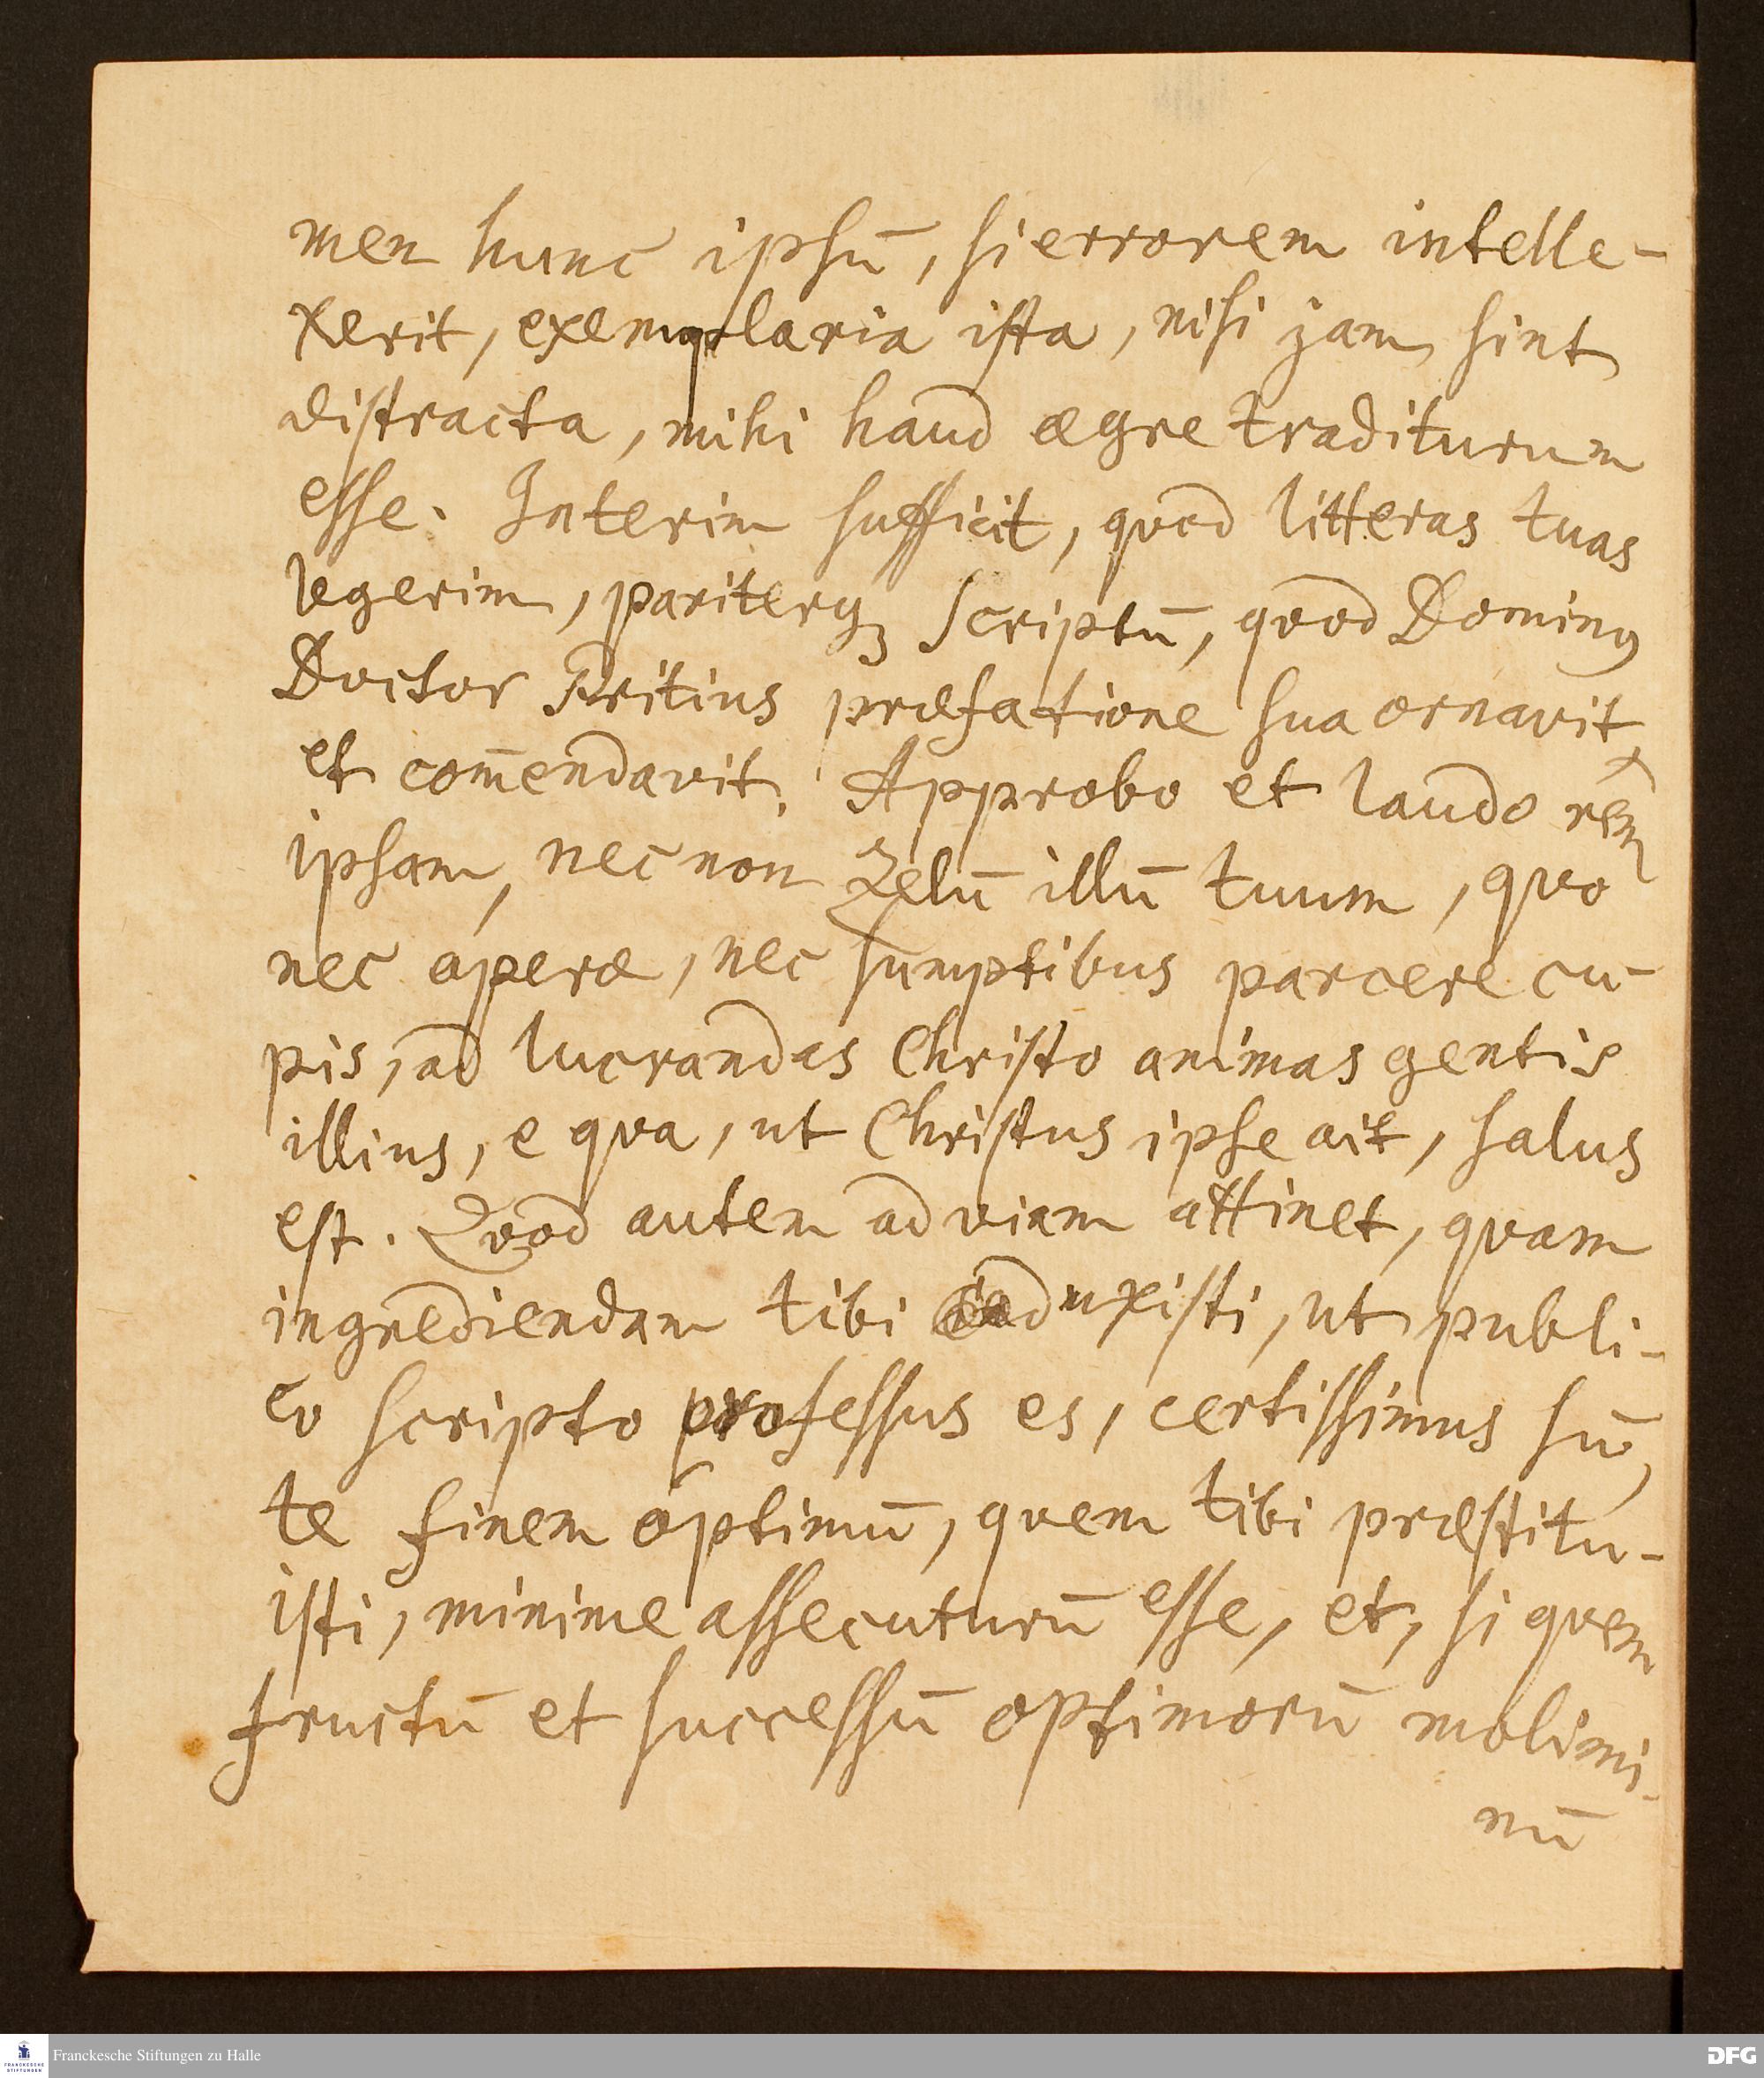 men hunc ipsū, si errorem intelle-
xerit, exemplaria ista, nisi jam sint
distracta, mihi haud ægre traditurum
esse. Interim sufficit, qvod litteras tuas
legerim, pariterqꝫ scriptū, qvod Dominꝰ
Doctor Pritius præfatione sua ornavit
et com̄endavit. Approbo et laudo rem
ipsam, nec non Zelū illū tuum, qvo
nec operæ, nec sumptibus parcere cu-
pis, ad lucrandas Christo animas gentis
illius, e qva, ut Christus ipse ait, salus
est. Qvod autem ad viam attinet, qvam
ingrediendam tibi duxisti, ut publi-
co scripto professus es, certissimus sū,
te finem optimū, qvem tibi præstitu-
isti, minime assecuturū esse, et, si qvem
fructū et successū optimorū molimi-
nū
Franckesche Stiftungen zu Halle
FRANCKESCHE
STIFTUNGEN
DFG